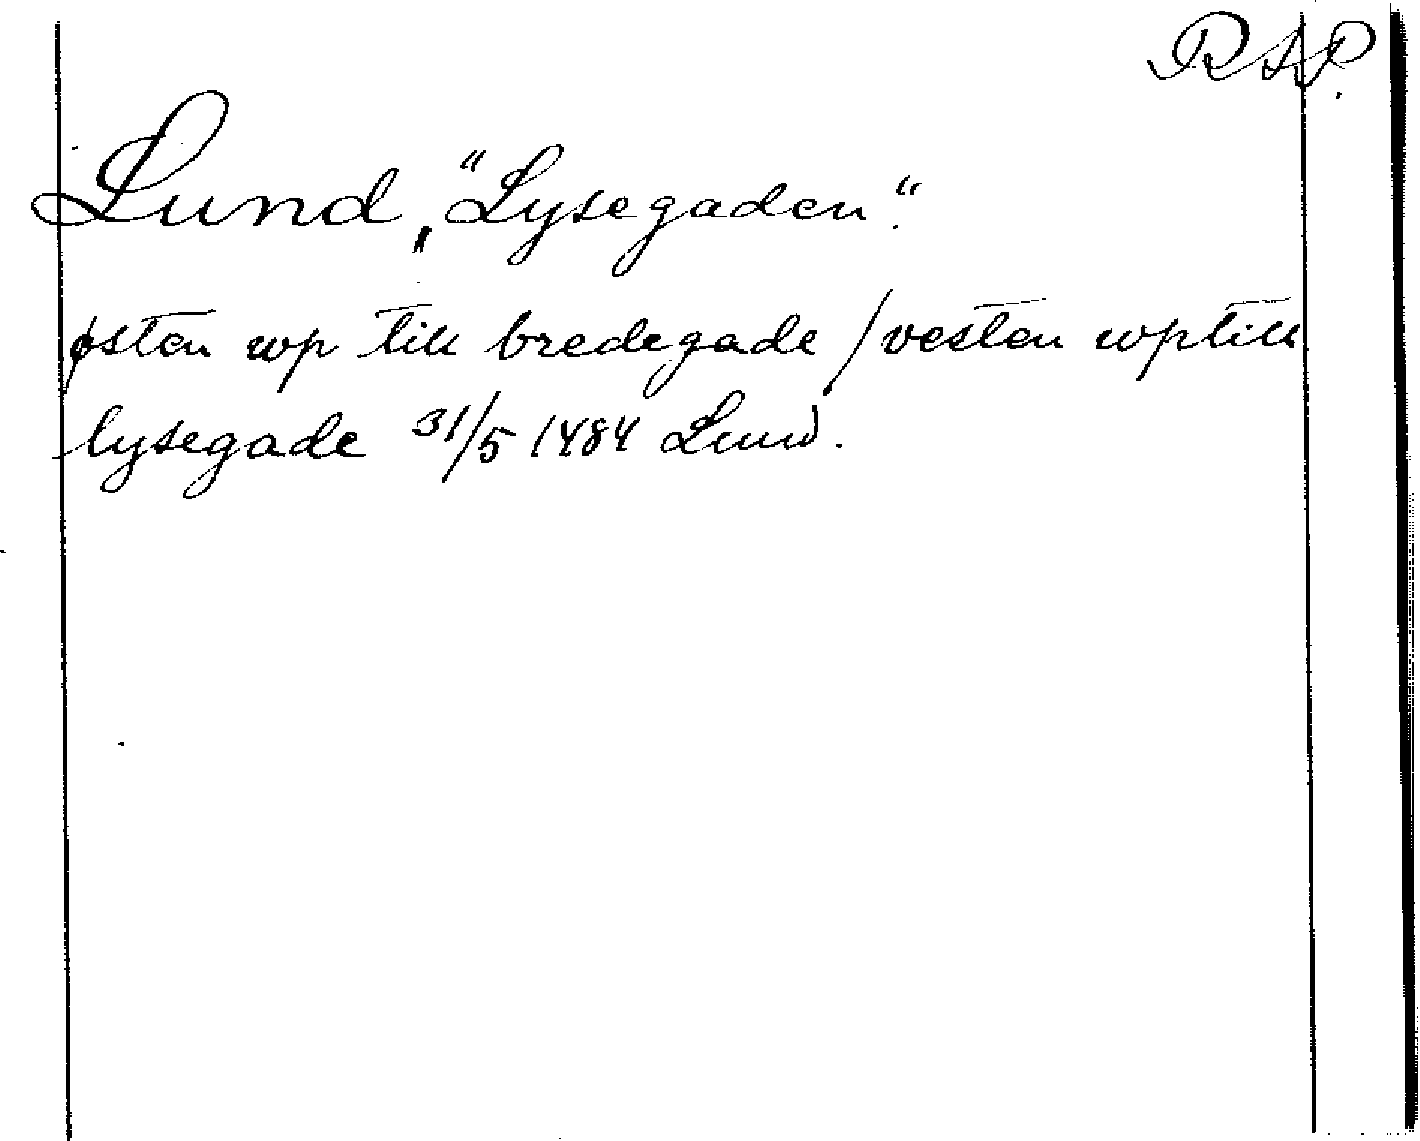 RAP.
Lund, "Lysegaden."
østen wp till bredegade / vesten wp till
lysegade 31/5 1484 Lund.